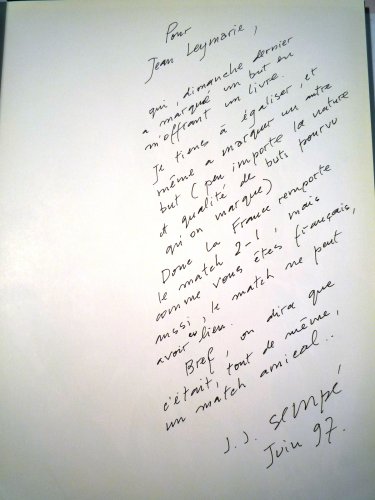 Pour
Jean Leymarie,
qui, dimanche dernier
a marqué un but en
m'offrant un livre.
Je tiens à égaliser, et
même a marquer un autre
but (peu importe la nature
et qualité de buts pourvu
qu'on marque)
Donc la France remporte
le match 2-1, mais
comme vous êtes français,
aussi, le match ne peut
avoir eu lieu.
Bref, on dira que
c'était, tout de même,
un match amical..
J. J. SEMPÉ
Juin 97.